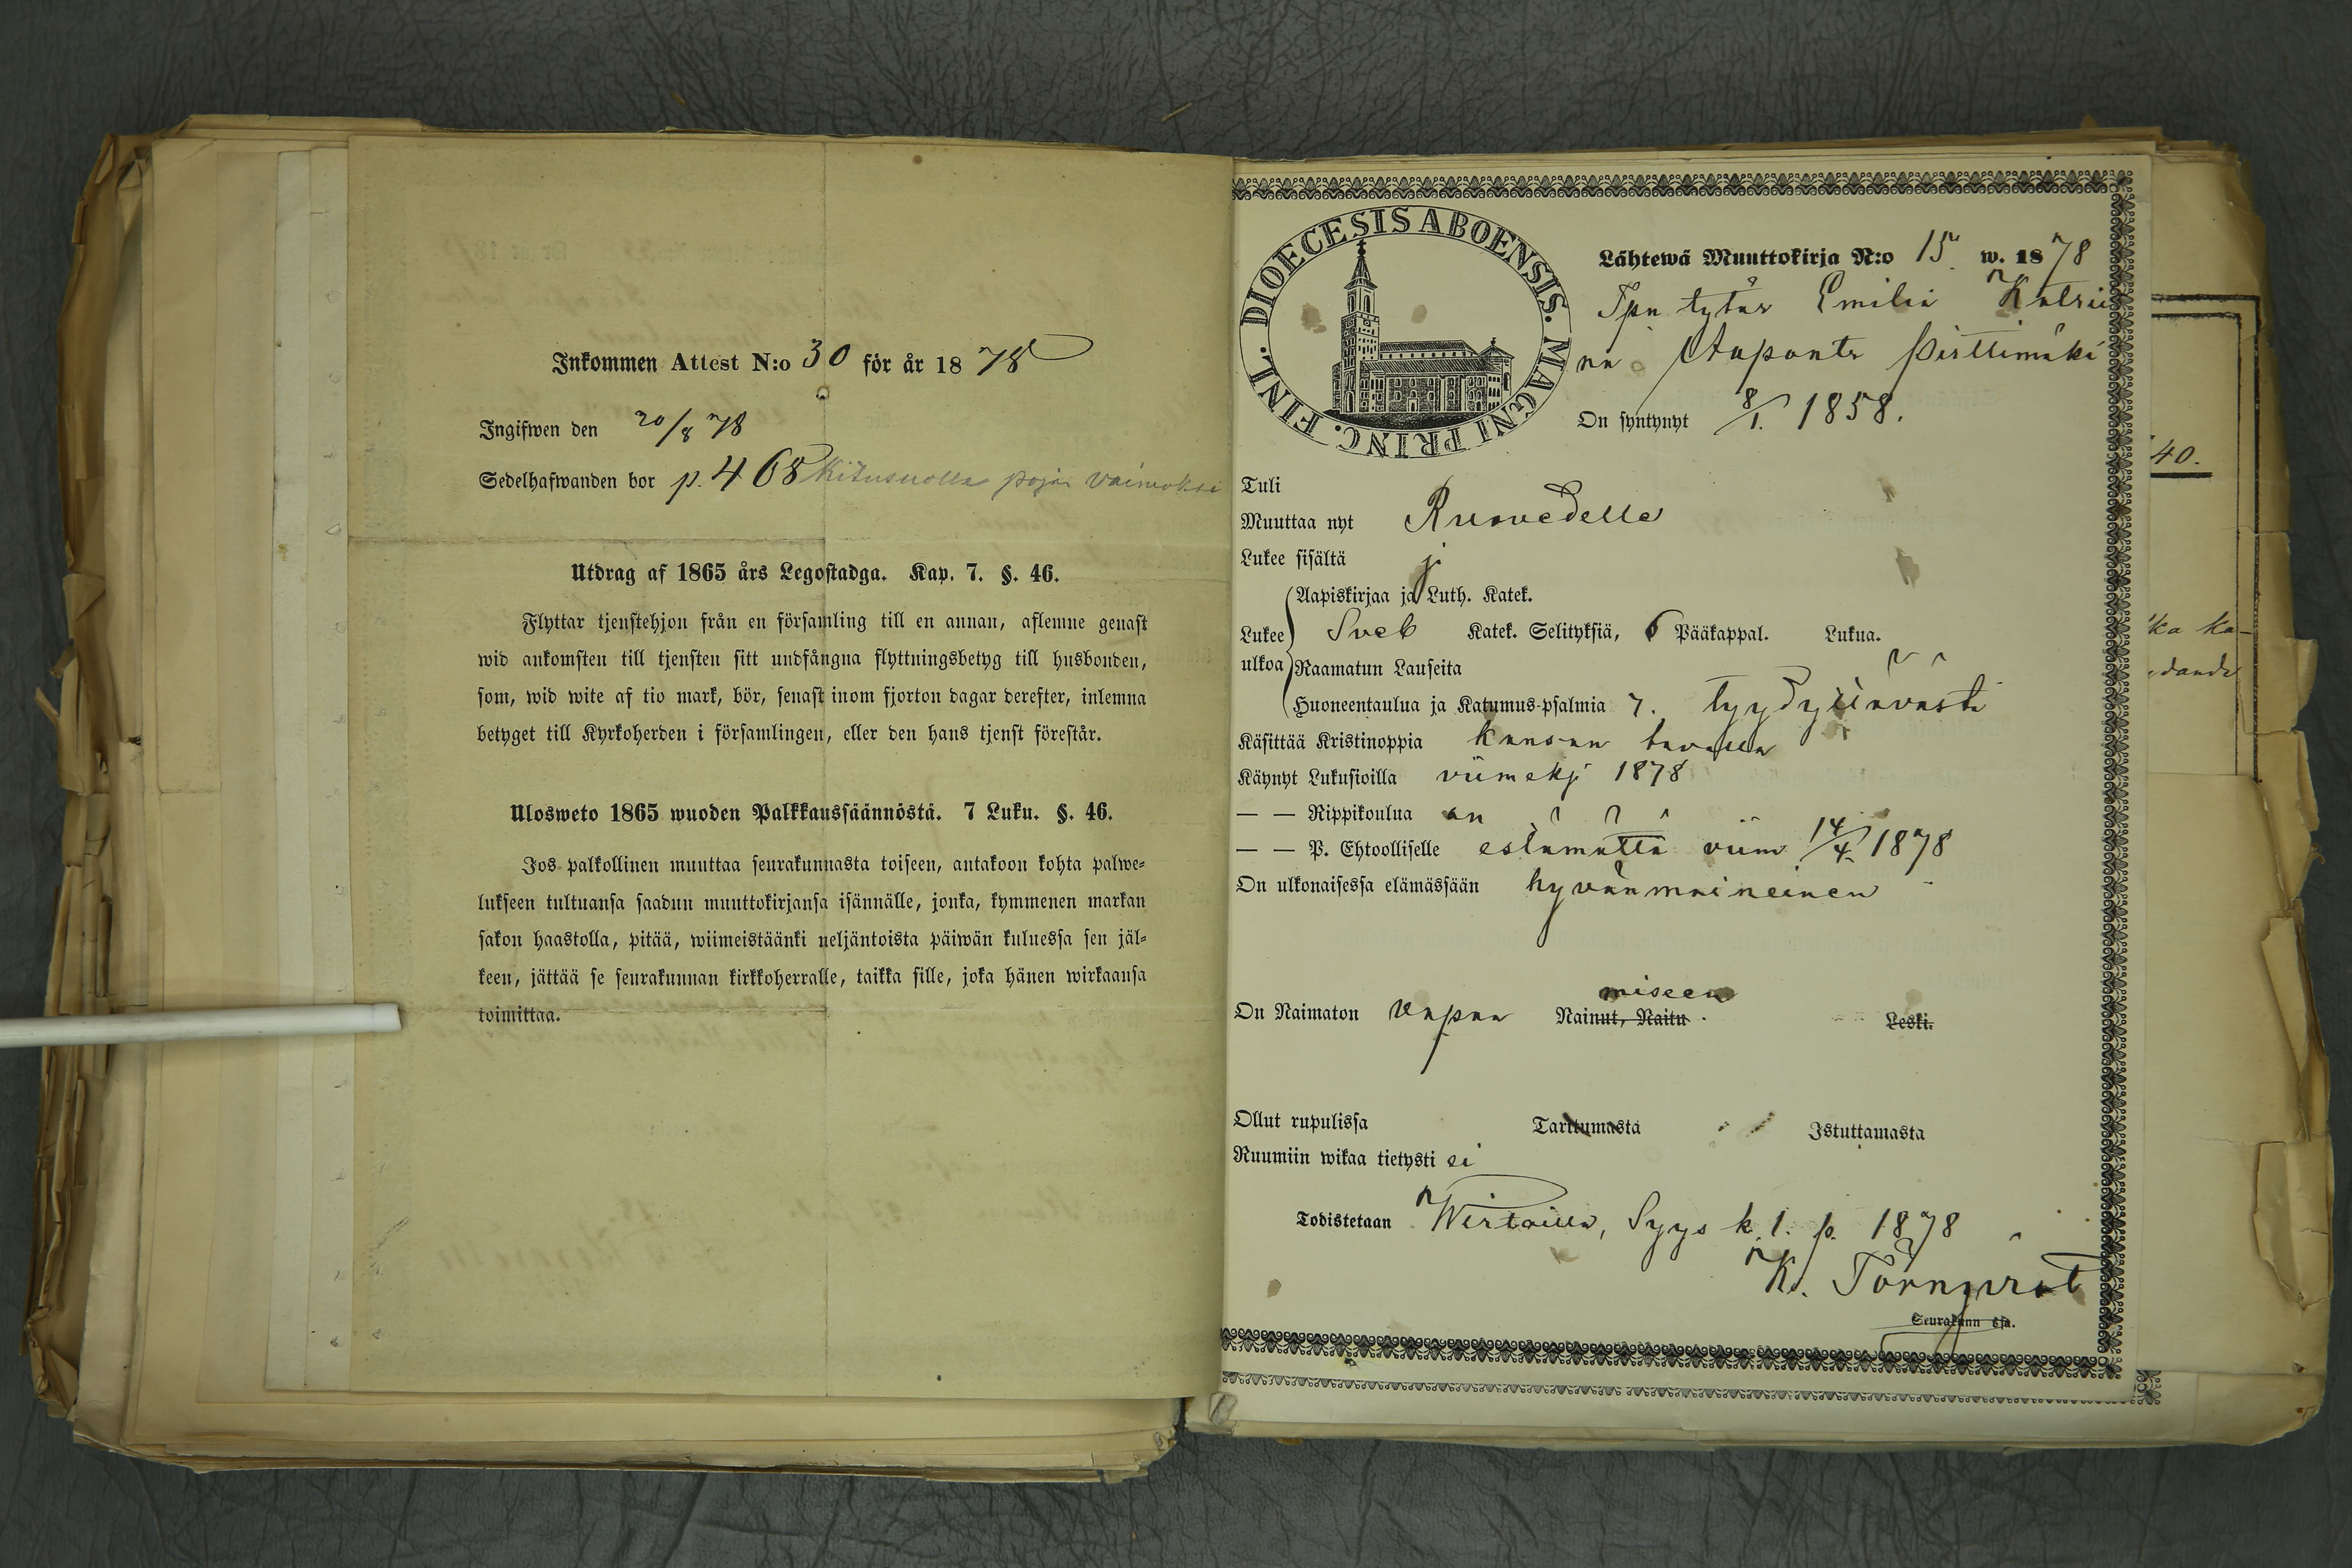 Inkommen Attest N:o 30 för år 1878
Ingifwen den 20/8 78
Sedelhafwanden bor p. 468 Kitusuolla pojan vaimoksi
Utdrag af 1865 års Legostadga. Kap. 7. §. 46.
Flyttar tjenstehjon från en församling till en annan, aflemne genast
wid ankomsten till tjensten sitt undfångna flyttningsbetyg till husbonden,
som, wid wite af tio mark, bör, senast inom fjorton dagar derefter, inlemna
betyget till Kyrkoherden i församlingen, eller den hans tjenst förestår.
Ulosweto 1865 wuoden Palkkaussäännöstä. 7 Luku. §. 46.
Jos palkollinen muuttaa seurakunnasta toiseen, antakoon kohta palwe-
lukseen tultuansa saadun muuttokirjansa isännälle, jonka, kymmenen markan
sakon haastolla, pitää, wiimeistäänki neljäntoista päiwän kuluessa sen jäl-
keen, jättää se seurakunnan kirkkoherralle, taikka sille, joka hänen wirkaansa
toimittaa.
DIOECESIS ABOENSIS. MAGNI PRINC. FINL.
Lähtewä Muuttokirja N:o 15 w. 1878
Tpn tytär Emilia Katrii
na Pirttimäki
On syntynyt 8/1. 1858.
Tuli
Muuttaa nyt Ruovedelle
Lukee sisältä j
Aapiskirjaa ja Luth. Katek.
Lukee ulkoa Sveb Katek. Selityksiä, 6 Pääkappal. Lukua.
Raamatun Lauseita
Huoneentaulua ja Katumus-psalmia 7. tyydyttävästi
Käsittää Kristinoppia kansan tavalla
Käynyt Lukusioilla viimeksi 1878
— — Rippikoulua on
— — P. Ehtoolliselle estämättä viim. 14/4. 1878
On ulkonaisessa elämässään hyvänmaineinen
miseen
On Naimaton vapaa Nainut, Naitu Leski.
Ollut rupulissa Tarttumasta Istuttamasta
Ruumiin wikaa tietysti ei
Todistetaan Wirtoilla, Syys k. 1. p. 1878
K. Törnqvist
Seurakunn ssa.
40.